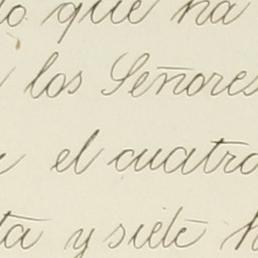 que ha
los Señores
el cuatro
y siete